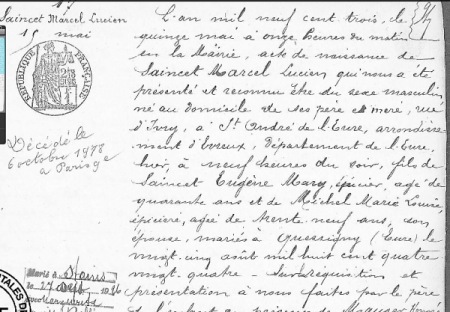 Saincet Marcel Lucien
15 mai
RÉPUBLIQUE FRANÇAISE
Décédé le
6 octobre 1978
à Paris
Marié à Stains
le 27
L'an mil neuf cent trois, le
quinze mai à onze heures du matin
sur la Mairie, acte de naissance de
Saincet Marcel Lucien qui nous a été
présenté et reconnu être du sexe masculin
né au domicile de ses père et mère, rue
d'Ivry, à St André de l'Eure, arrondisse
ment d'Evreux, département de l'Eure,
hier, à neuf heures du soir, fils de
Saincet Eugène Mary, épicier, agé de
quarante ans et de Michel Marie Louise,
épicière, agée de trente neuf ans, son
épouse, mariés à (Eure) le
vingt cinq août mil huit cent quatre
vingt quatre - Sur la réquisition et
présentation à nous faites par le père
de l'enfant en présence de